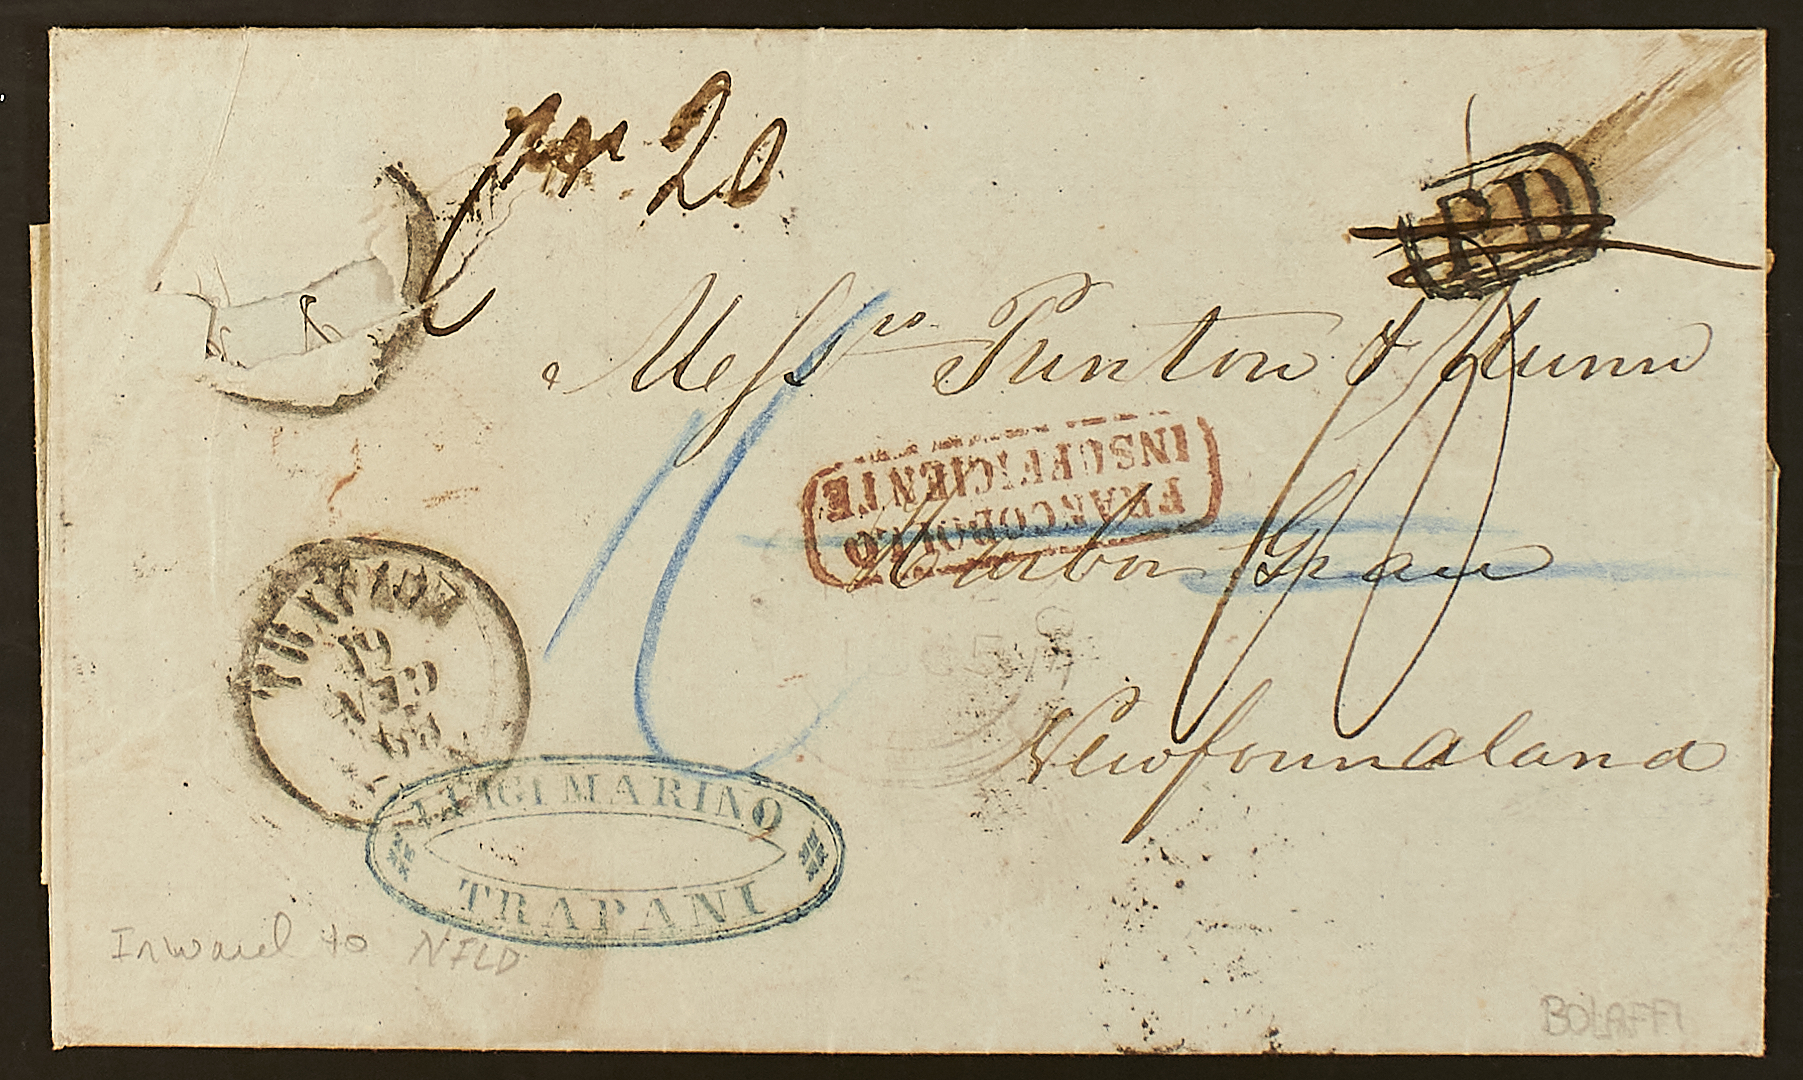 20
PD
Messrs Punton & Munn
FRANCOBOLLO
INSUFFICIENTE
Harbor Grace
Newfoundland
19
GEN
65
LUIGI MARINO
TRAPANI
Inward to NFLD
BOLAFFI